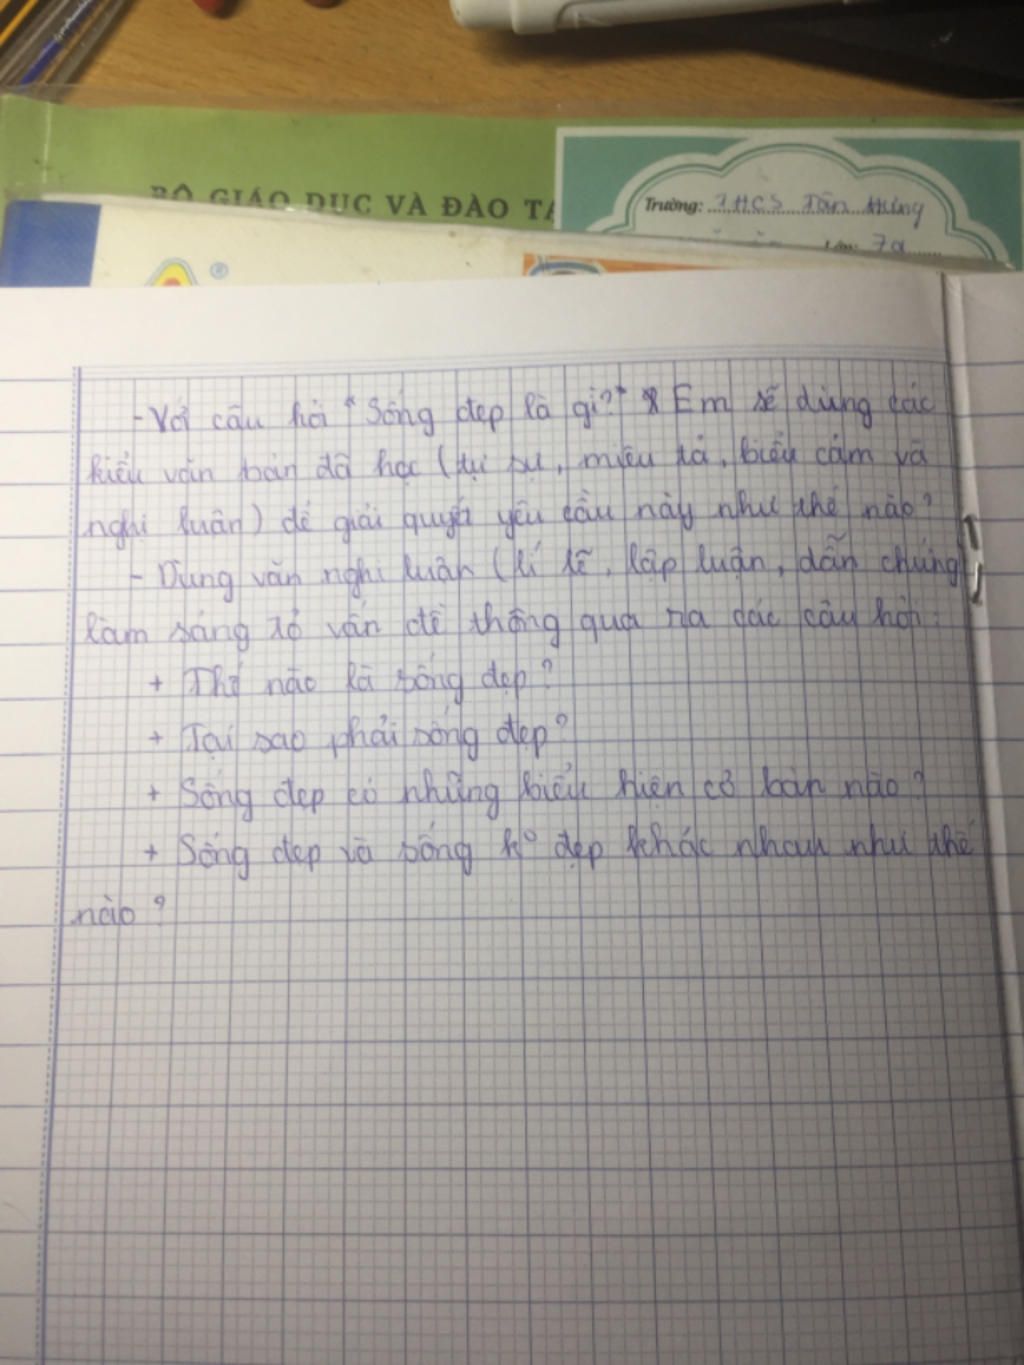 BỘ GIÁO DỤC VÀ ĐÀO TẠ
Trường: THCS Tân Hưng
7a
®
- Với câu hỏi "Sống đẹp là gì?" Em sẽ dùng các
kiểu văn bản đã học (tự sự, miêu tả, biểu cảm và
nghị luận) để giải quyết yêu cầu này như thế nào?
- Dùng văn nghị luận (lí lẽ, lập luận, dẫn chứng
làm sáng tỏ vấn đề thông qua ra các câu hỏi:
+ Thế nào là sống đẹp?
+ Tại sao phải sống đẹp?
+ Sống đẹp có những biểu hiện cơ bản nào?
+ Sống đẹp và sống ko đẹp khác nhau như thế
nào?